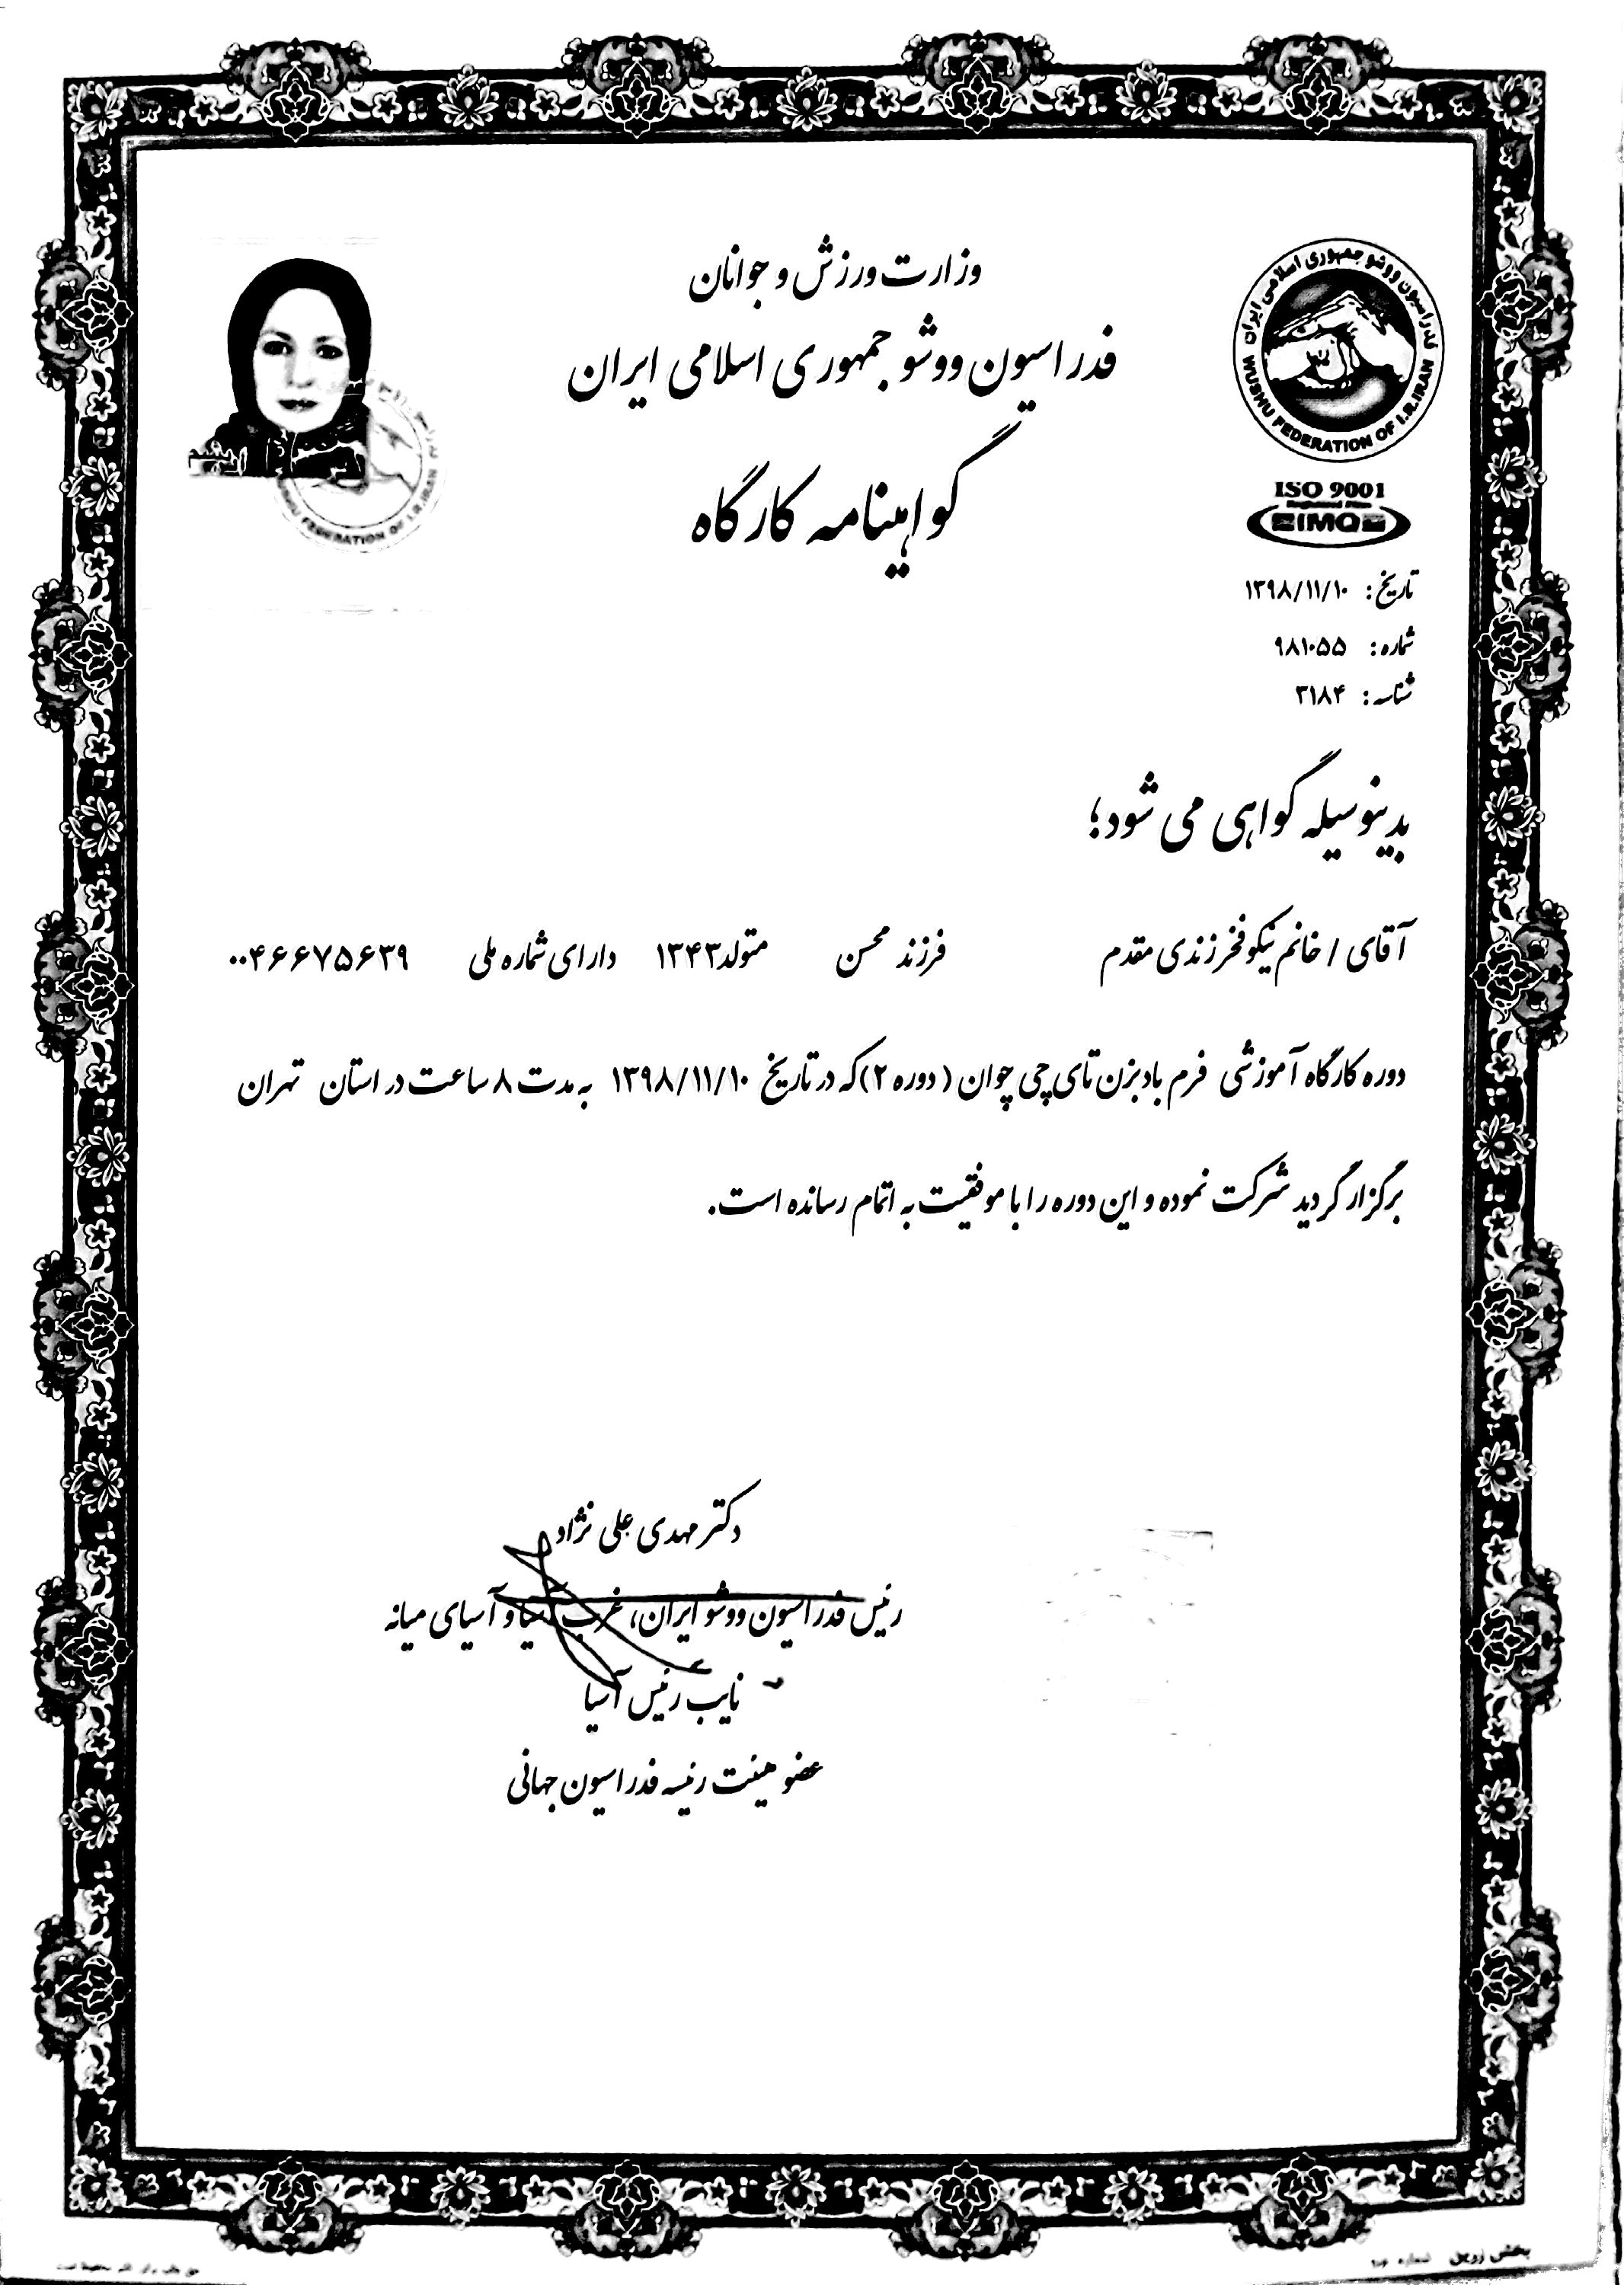 وزارت ورزش و جوانان
فدراسیون ووشو جمهوری اسلامی ایران
گواهینامه کارگاه
فدراسیون ووشو جمهوری اسلامی ایران
WUSHU FEDERATION OF I.R.IRAN
ISO 9001
IMQ
تاریخ: ۱۳۹۸/۱۱/۱۰
شماره: ۹۸۱۰۵۵
شناسه: ۳۱۸۴
FEDERATION OF I.R.IRAN
بدینوسیله گواهی می شود؛
آقای / خانم نیکو فخر زندی مقدم فرزند محسن متولد ۱۳۴۳ دارای شماره ملی ۰۰۴۶۶۷۵۶۳۹
دوره کارگاه آموزشی فرم بادبزن تای چی چوان (دوره ۲) که در تاریخ ۱۳۹۸/۱۱/۱۰ به مدت ۸ ساعت در استان تهران
برگزار گردید شرکت نموده و این دوره را با موفقیت به اتمام رسانده است.
دکتر مهدی علی نژاد
رئیس فدراسیون ووشو ایران، غرب آسیا و آسیای میانه
نایب رئیس آسیا
عضو هیئت رئیسه فدراسیون جهانی